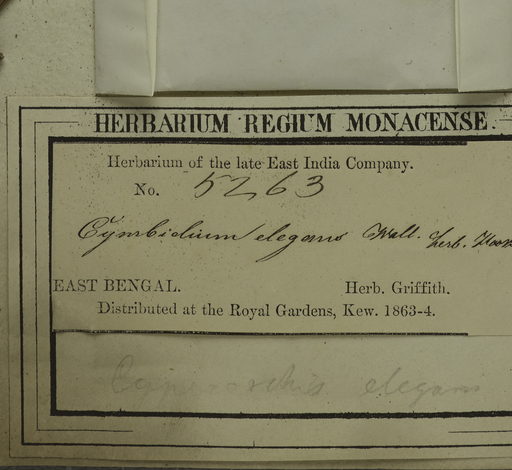 HERBARIUM REGIUM MONACENSE.
Herbarium of the late East India Company.
No. 5263
Cymbidium elegans Wall. herb. Hook
EAST BENGAL. Herb. Griffith.
Distributed at the Royal Gardens, Kew. 1863-4.
Cyperorchis elegans